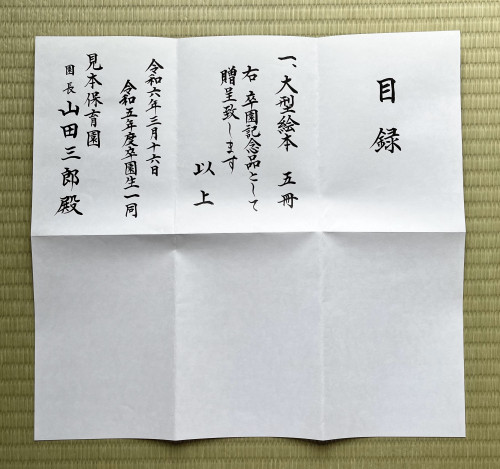 目録
一、大型絵本　五冊
右　卒園記念品として
贈呈致します
以上
令和六年三月十六日
令和五年度卒園生一同
見本保育園
園長　山田三郎殿